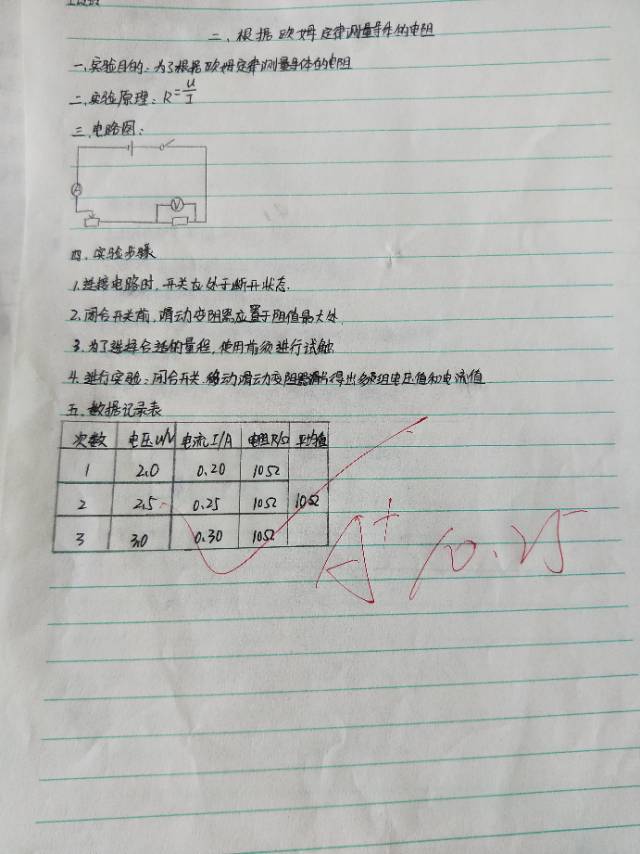 二、根据欧姆定律测量导体的电阻
一、实验目的:为了根据欧姆定律测量导体的电阻
二、实验原理:R=U/I
三、电路图:
A
V
四、实验步骤
1.连接电路时,开关应处于断开状态.
2.闭合开关前,滑动变阻器应置于阻值最大处.
3.为了选择合适的量程,使用前须进行试触.
4.进行实验:闭合开关,移动滑动变阻器滑片得出多组电压值和电流值
五、数据记录表
次数 电压U/V 电流I/A 电阻R/Ω 平均值
1 2.0 0.20 10Ω
2 2.5 0.25 10Ω 10Ω
3 3.0 0.30 10Ω
A+ 10.25